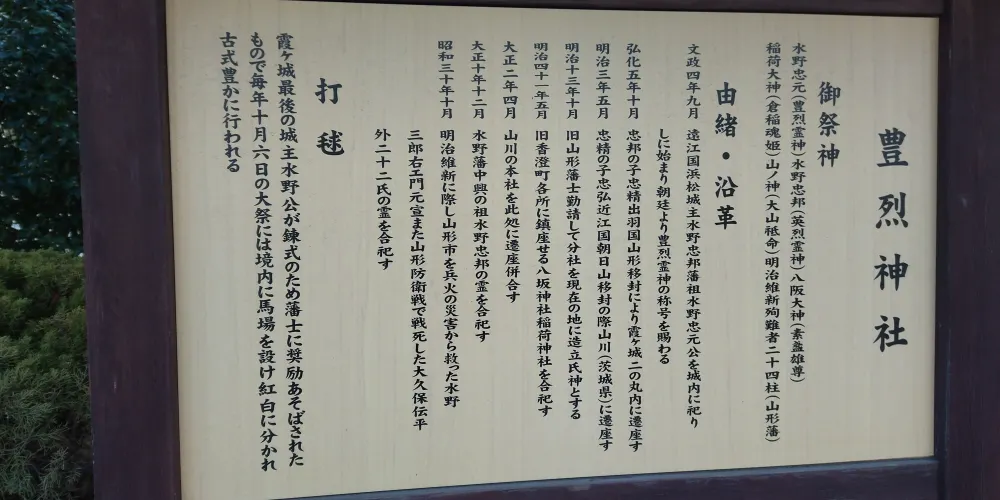 豊烈神社
御祭神
水野忠元(豊烈霊神)水野忠邦(英烈霊神)八阪大神(素盞雄尊)
稲荷大神(倉稲魂姫)山ノ神(大山祗命)明治維新殉難者二十四柱(山形藩)
由緒・沿革
文政四年九月 遠江国浜松城主水野忠邦藩祖水野忠元公を城内に祀り
しに始まり朝廷より豊烈霊神の称号を賜わる
弘化五年十月 忠邦の子忠精出羽国山形移封により霞ヶ城二の丸内に遷座す
明治三年五月 忠精の子忠弘近江国朝日山移封の際山川(茨城県)に遷座す
明治十三年十月 旧山形藩士勧請して分社を現在の地に造立氏神とする
明治四十一年五月 旧香澄町各所に鎮座せる八坂神社稲荷神社を合祀す
大正二年四月 山川の本社を此処に遷座併合す
大正十年十二月 水野藩中興の祖水野忠邦の霊を合祀す
昭和三十年十月 明治維新に際し山形市を兵火の災害から救った水野
三郎右エ門元宣また山形防衛戦で戦死した大久保伝平
外二十二氏の霊を合祀す
打毬
霞ヶ城最後の城主水野公が錬式のため藩士に奨励あそばされた
もので毎年十月六日の大祭には境内に馬場を設け紅白に分かれ
古式豊かに行われる